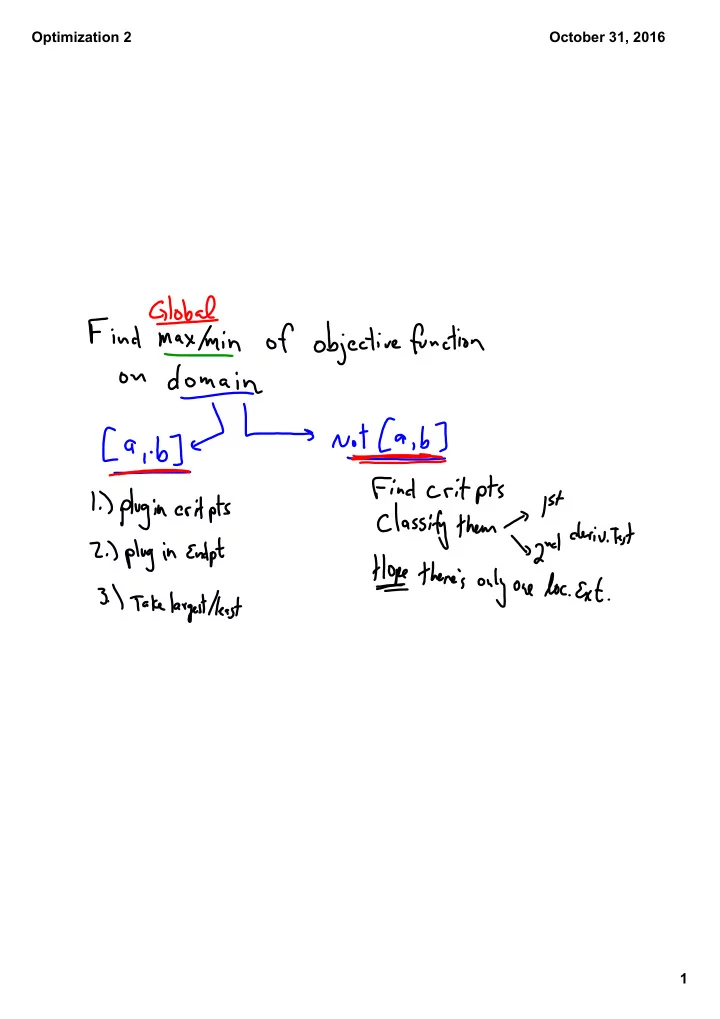 Optimization 2
October 31, 2016
Global
Find max/min of objective function
on domain
[a,b]
Not [a,b]
1.) plug in crit pts
2.) plug in Endpt
3.) Take largest/least
Find crit pts
Classify them
1st
2nd deriv. Test
Hope there's only one loc. Ext.
1